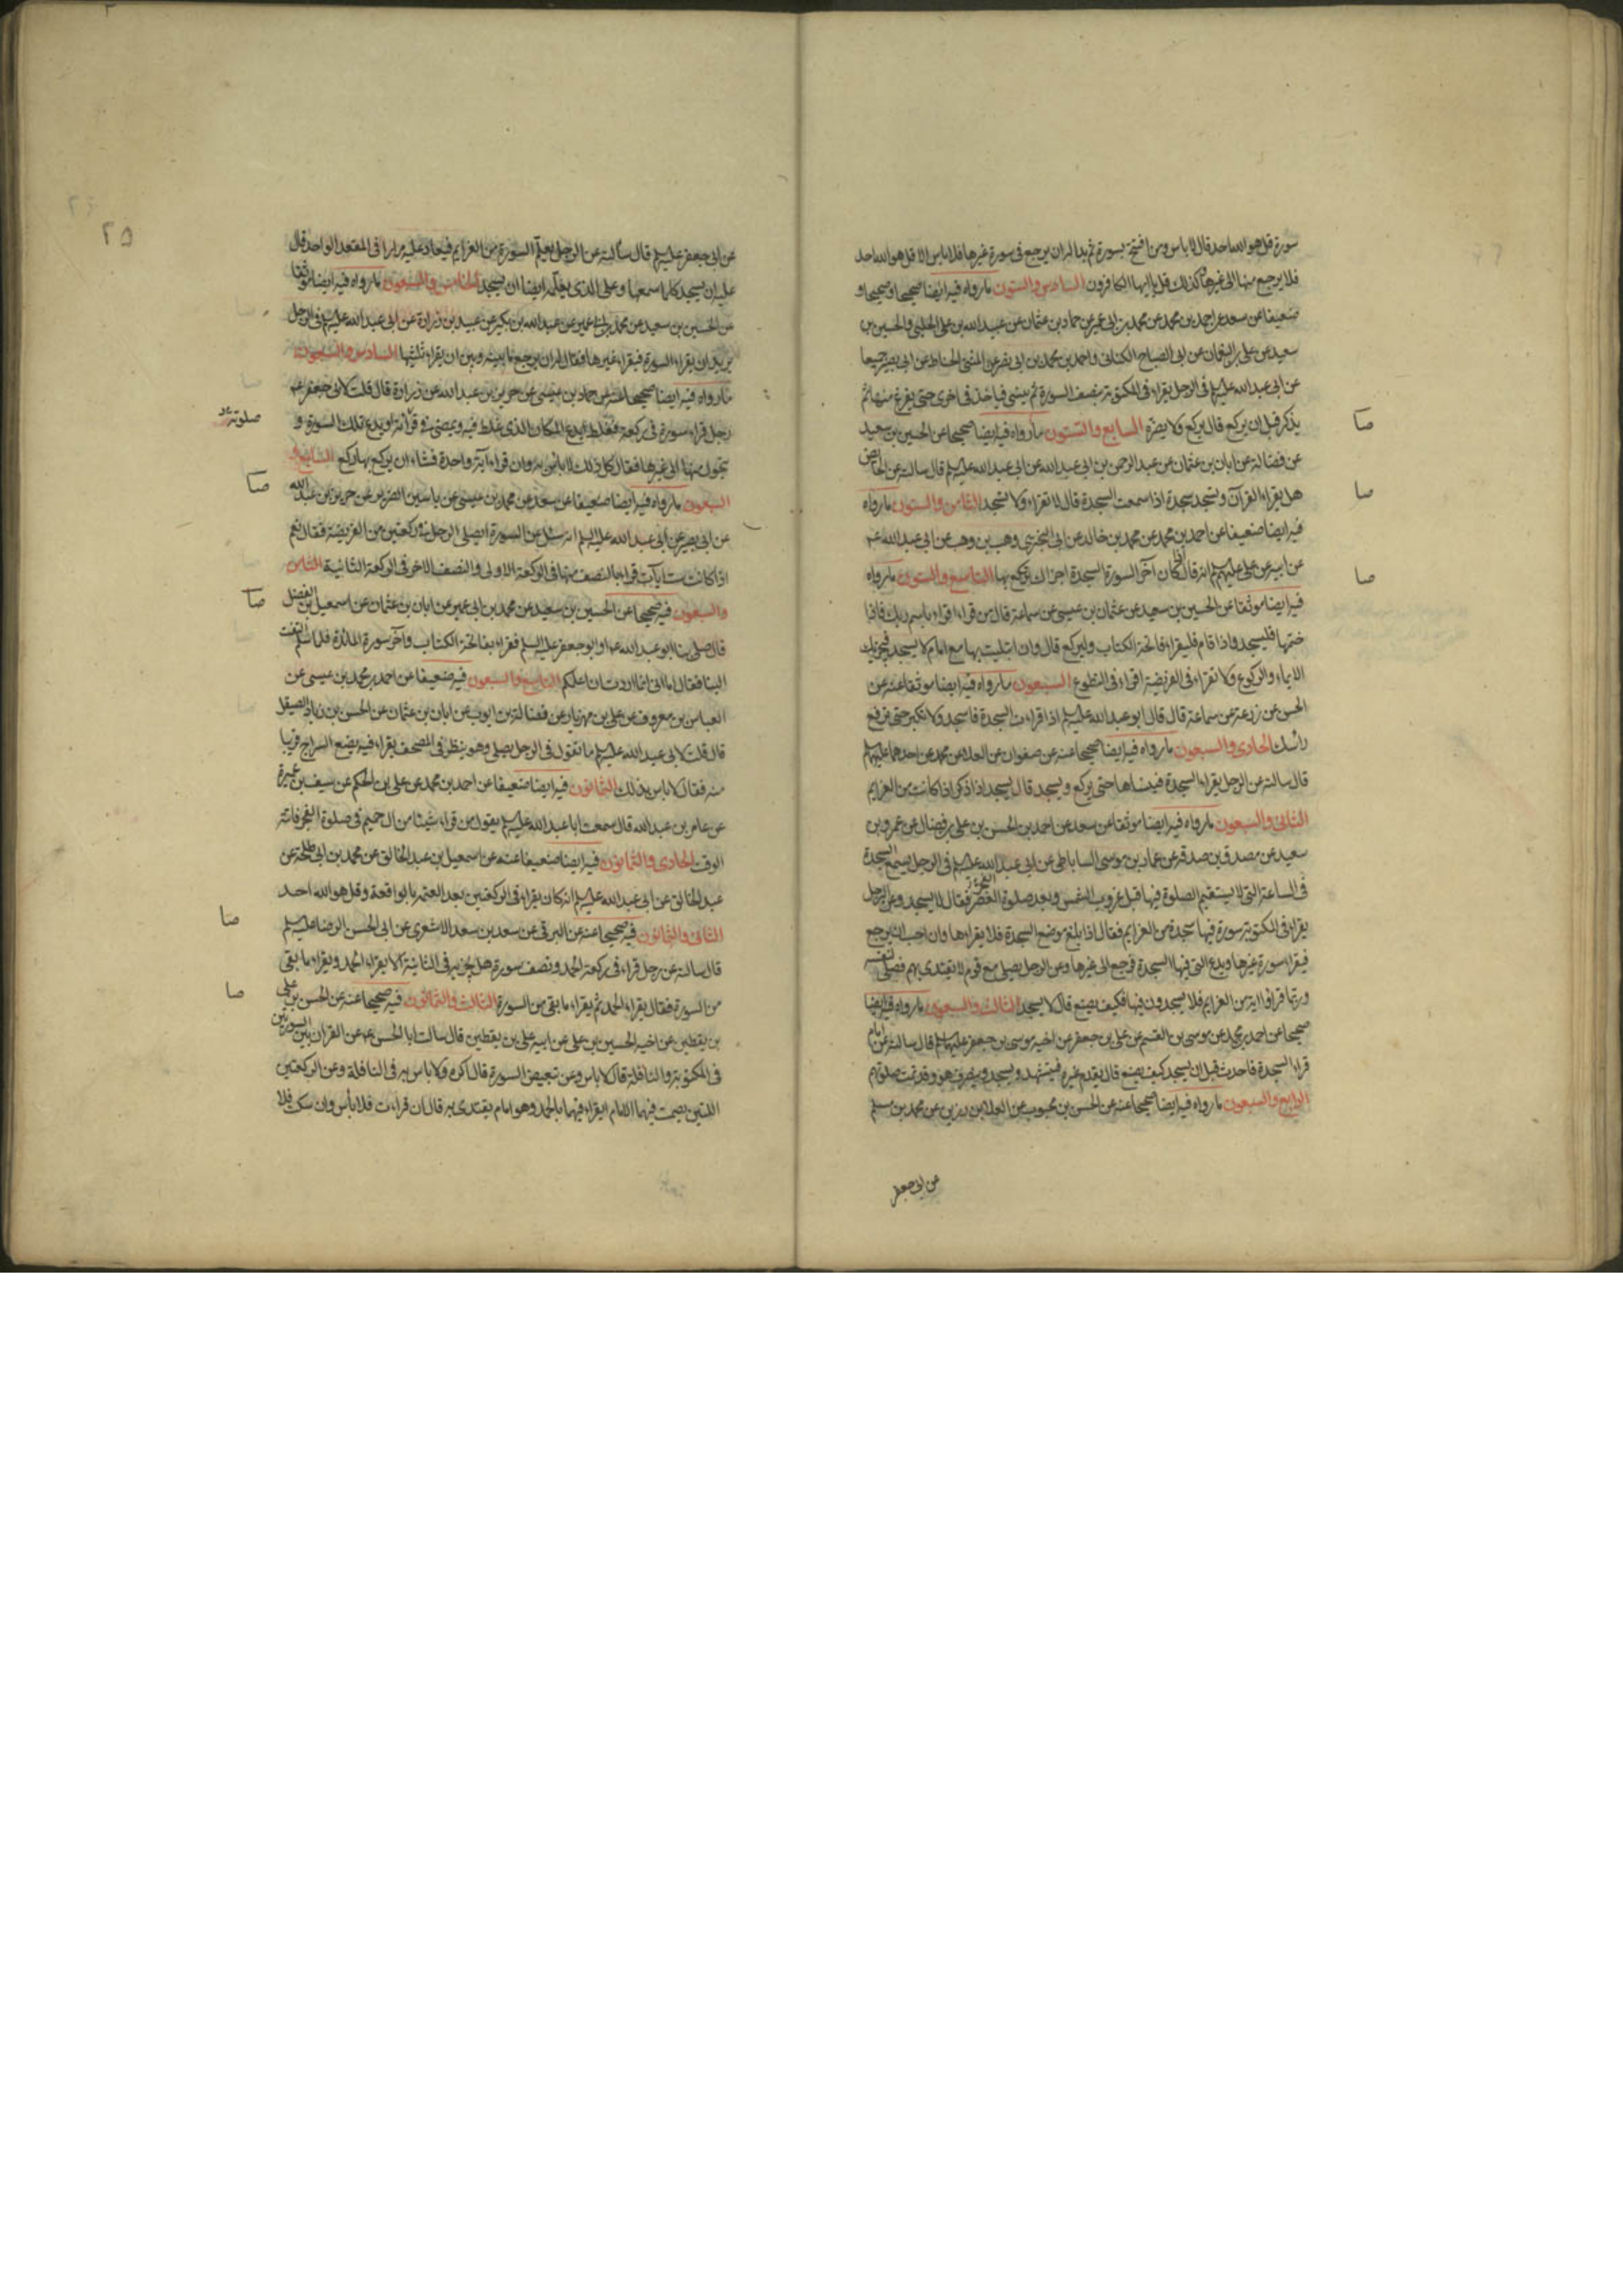 سورة قل هو الله احد قال لا باس ومن افتتح بسورة ثم بدا له ان يرجع في سورة غيرها فلا باس الا قل هو الله احد
فلا يرجع منها الى غيرها وكذلك قل يا ايها الكافرون السادس والستون ما رواه فيه ايضا صحيحا وصحيحا و
ضعيفا عن سعد عن احمد بن محمد عن محمد بن ابي عمير عن حماد بن عثمان عن عبيد الله بن علي الحلبي والحسين بن
سعيد عن علي بن النعمان عن ابي الصباح الكناني واحمد بن محمد بن ابي نصر عن المثنى الحناط عن ابي بصير جميعا
عن ابي عبد الله عليه السلم في الرجل يقراء في المكتوبة بنصف السورة ثم ينسى فياخذ في اخرى حتى يفرغ منها ثم
يذكر قبل ان يركع قال يركع ولا يضره السابع والستون ما رواه فيه ايضا صحيحا عن الحسين بن سعيد
عن فضالة عن ابان بن عثمان عن عبد الرحمن بن ابي عبد الله عن ابي عبد الله عليه السلم قال سالته عن الحائض
هل يقراء القرآن وتسجد سجدة اذا سمعت السجدة قال لا تقراء ولا تسجد الثامن والستون ما رواه
فيه ايضا ضعيفا عن احمد بن محمد عن محمد بن خالد عن ابي البختري وهب بن وهب عن ابي عبد الله عه
عن ابيه عن علي عليهم السلم انه قال اذا كان آخر السورة السجدة اجزاك ان تركع بها التاسع والستون ما رواه
فيه ايضا موثقا عن الحسين بن سعيد عن عثمان بن عيسى عن سماعة قال من قراء اقراء باسم ربك فاذا
ختمها فليسجد واذا قام فليقراء فاتحة الكتاب وليركع قال وان ابتليت بها مع امام لا يسجد فيجزيك
الايماء والركوع ولا تقراء في الفريضة اقراء في التطوع السبعون ما رواه فيه ايضا موثقا عنه عن
الحسن عن زرعة عن سماعة قال قال ابو عبد الله عليه السلم اذا قراءت السجدة فاسجد ولا تكبر حتى ترفع
راسك الحادي والسبعون ما رواه فيه ايضا صحيحا عنه عن صفوان عن العلا عن محمد عن احدهما عليهما السلم
قال سالته عن الرجل يقراء السجدة فينساها حتى يركع ويسجد قال يسجد اذا ذكر اذا كانت من العزايم
الثاني والسبعون ما رواه فيه ايضا موثقا عن سعد عن احمد بن الحسن بن علي بن فضال عن عمرو بن
سعيد عن مصدق بن صدقة عن عمار بن موسى الساباطي عن ابي عبد الله عليه السلم في الرجل يسمع السجدة
في الساعة التي لا يستقيم الصلوة فيها قبل غروب الشمس وبعد صلوة الفجر فقال لا يسجد وعن الرجل
يقراء في المكتوبة سورة فيها سجدة من العزايم فقال اذا بلغ موضع السجدة فلا يقراءها وان احب ان يرجع
فيقراء سورة غيرها ويدع التي فيها السجدة فيرجع الى غيرها وعن الرجل يصلي مع قوم لا يقتدى بهم فصلى لنفسه
وربما قراوا اية من العزايم فلا يسجدون فيها فكيف يصنع قال لا يسجد الثالث والسبعون ما رواه فيه ايضا
صحيحا عن احمد بن محمد عن موسى بن القسم عن علي بن جعفر عن اخيه موسى بن جعفر عليهما السلم قال سالته عن امام
قراء السجدة فاحدث قبل ان يسجد كيف يصنع قال يقدم غيره فيتشهد ويسجد وينصرف هو وقد تمت صلوتهم
الرابع والسبعون ما رواه فيه ايضا صحيحا عنه عن الحسن بن محبوب عن العلا بن رزين عن محمد بن مسلم
عن ابي جعفر
صا
صا
صا
٢٥
عن ابي جعفر عليه السلم قال سألته عن الرجل يعلم السورة من العزايم فيعاد عليه مرارا في المقعد الواحد قال
عليه ان يسجد كلما سمعها وعلى الذي يعلمه ايضا ان يسجد الخامس والسبعون ما رواه فيه ايضا موثقا
عن الحسين بن سعيد عن محمد بن ابي عمير عن عبد الله بن بكير عن عبيد بن زرارة عن ابي عبد الله عليه السلم في الرجل
يريد ان يقراء السورة فيقراء غيرها فقال له ان يرجع ما بينه وبين ان يقراء ثلثيها السادس والسبعون
ما رواه فيه ايضا صحيحا عنه عن حماد بن عيسى عن حريز بن عبد الله عن زرارة قال قلت لابي جعفر عه
رجل قراء سورة في ركعة فغلط ايدع المكان الذي غلط فيه ويمضي في قرائته او يدع تلك السورة و
يتحول منها الى غيرها فقال كل ذلك لا باس به وان قراء آية واحدة فشاء ان يركع بها ركع السابع و
السبعون ما رواه فيه ايضا ضعيفا عن سعد عن محمد بن عيسى عن ياسين الضرير عن حريز بن عبد الله
عن ابي بصير عن ابي عبد الله عليه السلم انه سئل عن السورة ايصلي الرجل في ركعتين من الفريضة فقال نعم
اذا كانت ست آيات قراء بالنصف منها في الركعة الاولى والنصف الاخر في الركعة الثانية الثامن
والسبعون فيه صحيحا عن الحسين بن سعيد عن محمد بن ابي عمير عن ابان بن عثمان عن اسمعيل بن الفضل
قال صلى بنا ابو عبد الله عه او ابو جعفر عليه السلم فقراء بفاتحة الكتاب وآخر سورة المائدة فلما سلم التفت
الينا فقال اما اني انما اردت ان اعلمكم التاسع والسبعون فيه ضعيفا عن احمد بن محمد بن عيسى عن
العباس بن معروف عن علي بن مهزيار عن فضالة بن ايوب عن ابان بن عثمان عن الحسن بن زياد الصيقل
قال قلت لابي عبد الله عليه السلم ما تقول في الرجل يصلي وهو ينظر في المصحف يقراء فيه يضع السراج قريبا
منه فقال لا باس بذلك الثمانون فيه ايضا ضعيفا عن احمد بن محمد عن علي بن الحكم عن سيف بن عميرة
عن عامر بن عبد الله قال سمعت ابا عبد الله عليه السلم يقول من قراء شيئا من ال حميم في صلوة الفجر فاته
الوقت الحادي والثمانون فيه ايضا ضعيفا عنه عن اسمعيل بن عبد الخالق عن محمد بن ابي طلحة عن
عبد الخالق عن ابي عبد الله عليه السلم انه كان يقراء في الركعتين بعد العتمة بالواقعة وقل هو الله احد
الثاني والثمانون فيه صحيحا عنه عن البرقي عن سعد بن سعد الاشعري عن ابي الحسن الرضا عليه السلم
قال سالته عن رجل قراء في ركعة الحمد ونصف سورة هل يجزيه في الثانية ان لا يقراء الحمد ويقراء ما بقي
من السورة فقال يقراء الحمد ثم يقراء ما بقي من السورة الثالث والثمانون فيه صحيحا عنه عن الحسن بن علي
بن يقطين عن اخيه الحسين بن علي عن ابيه علي بن يقطين قال سالت ابا الحسن عه عن القران بين السورتين
في المكتوبة والنافلة قال لا باس وعن تبعيض السورة قال اكره ولا باس به في النافلة وعن الركعتين
اللتين يصمت فيهما الامام ايقراء فيهما بالحمد وهو امام يقتدى به قال ان قراءت فلا بأس وان سكت فلا
صلوته
صا
صا
صا
صا